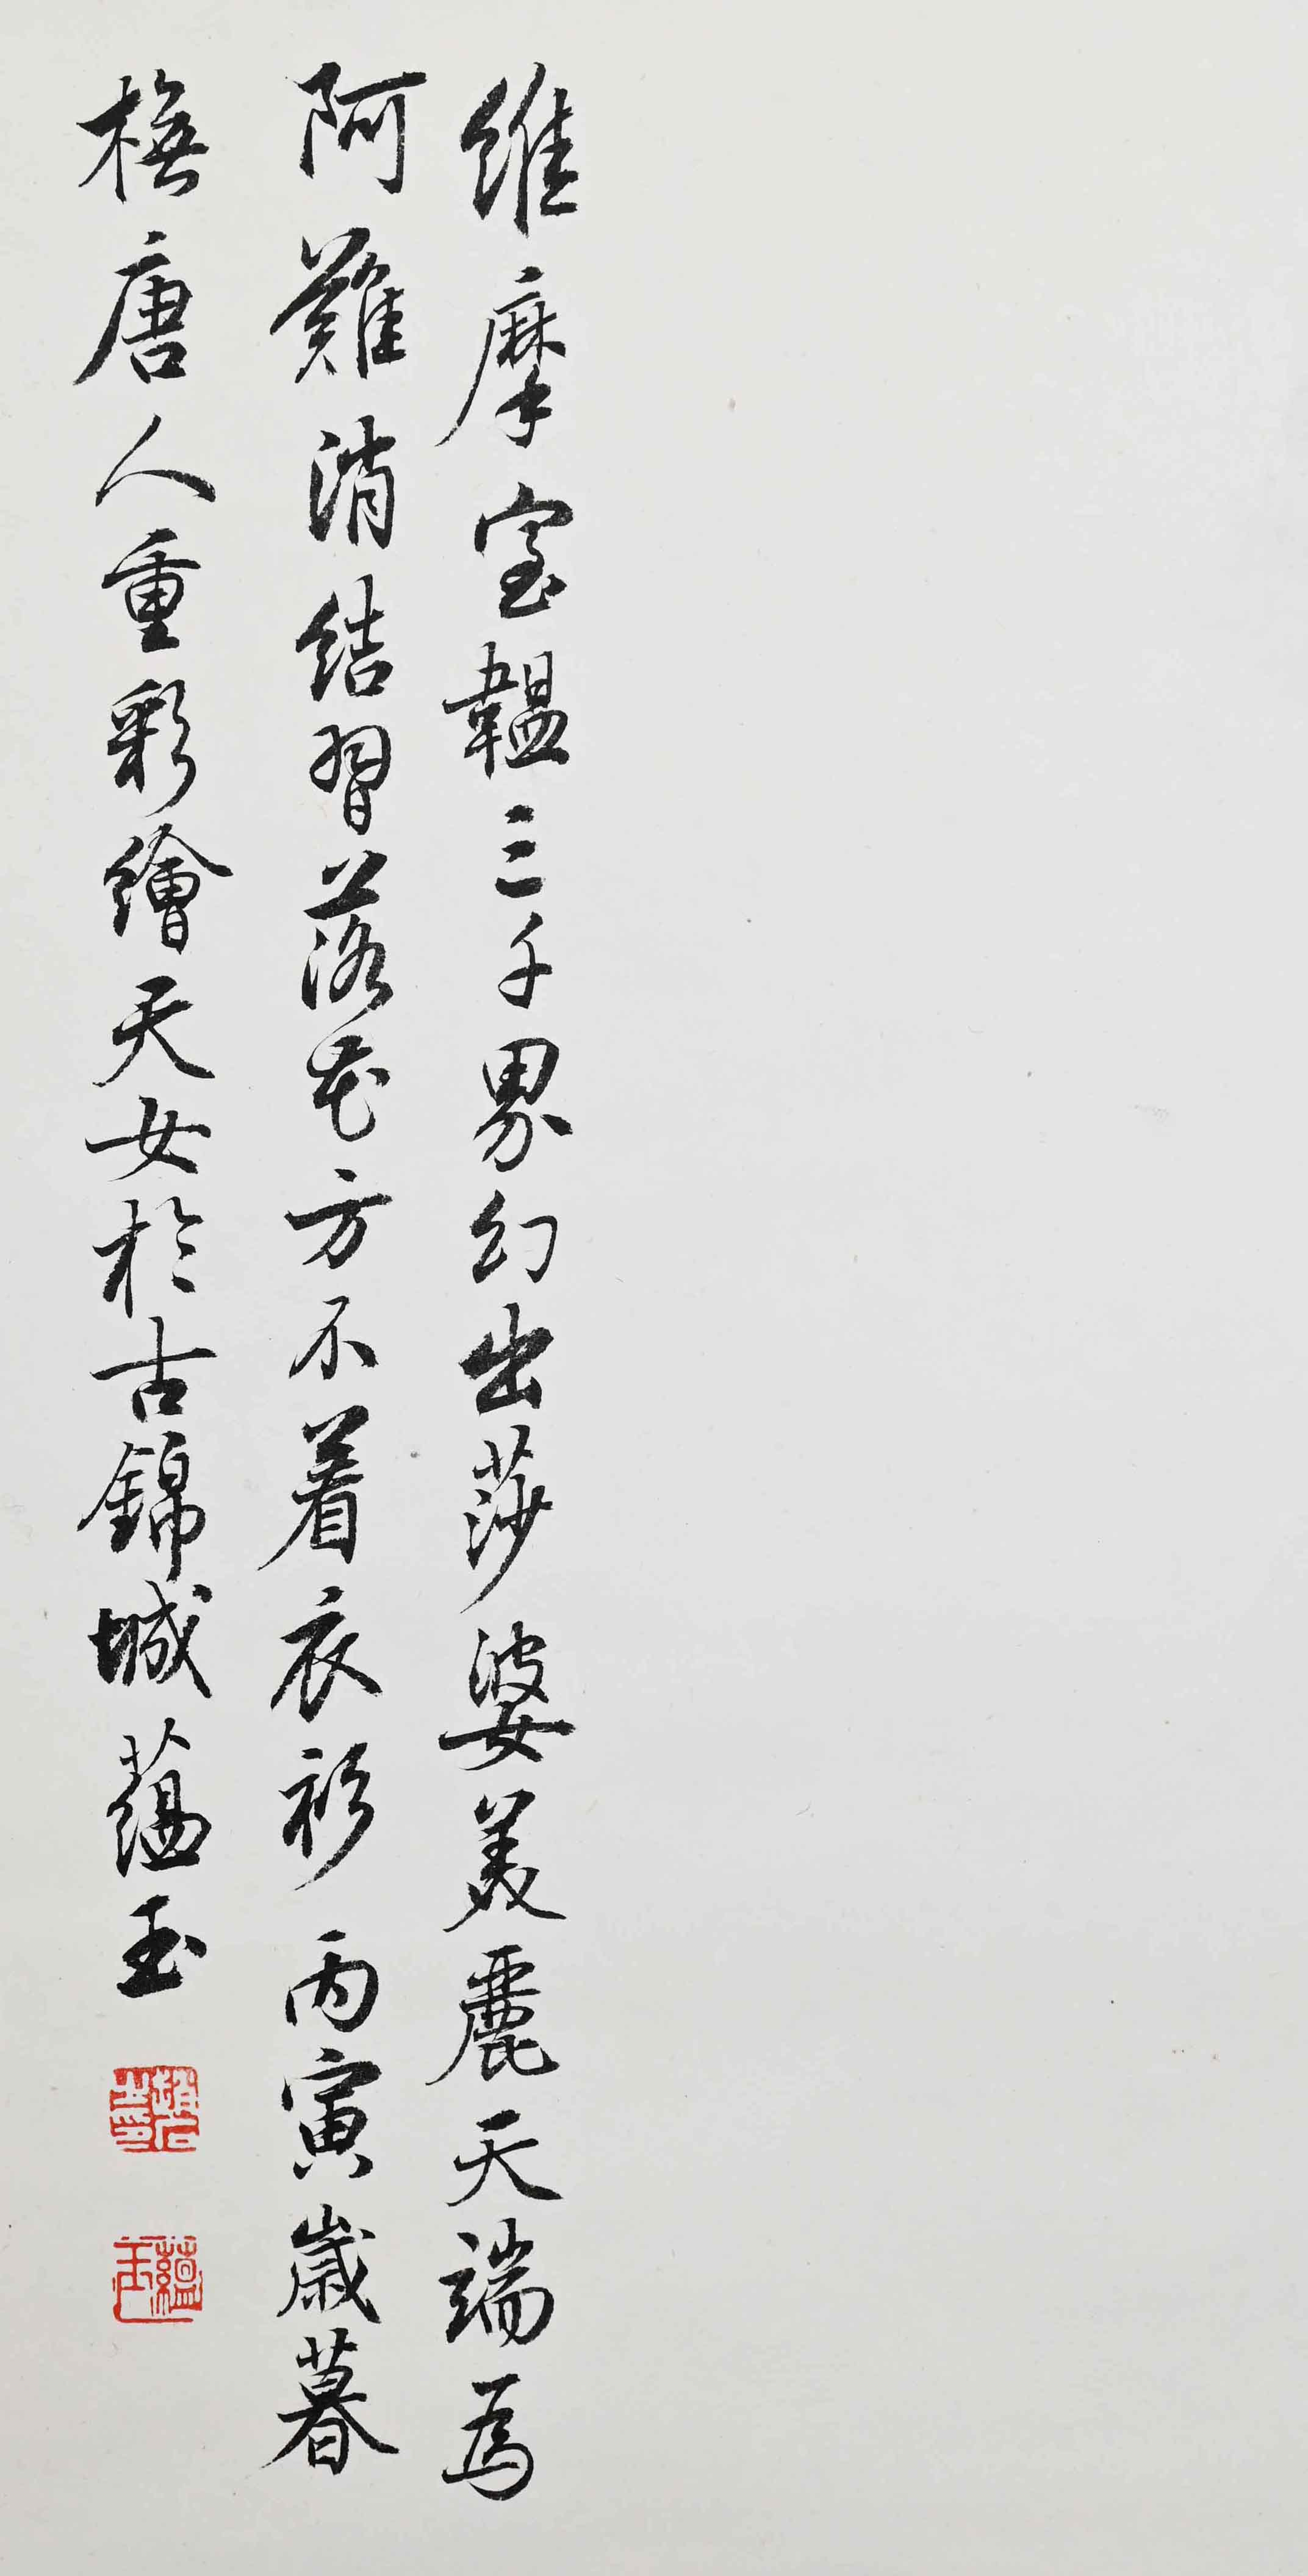 維摩室韞三千界幻出莎婆美麗天端為
阿難消結習落花方不着衣衫丙寅歲暮
橅唐人重彩繪天女於古錦城蘊玉
趙蘊玉印
蘊玉